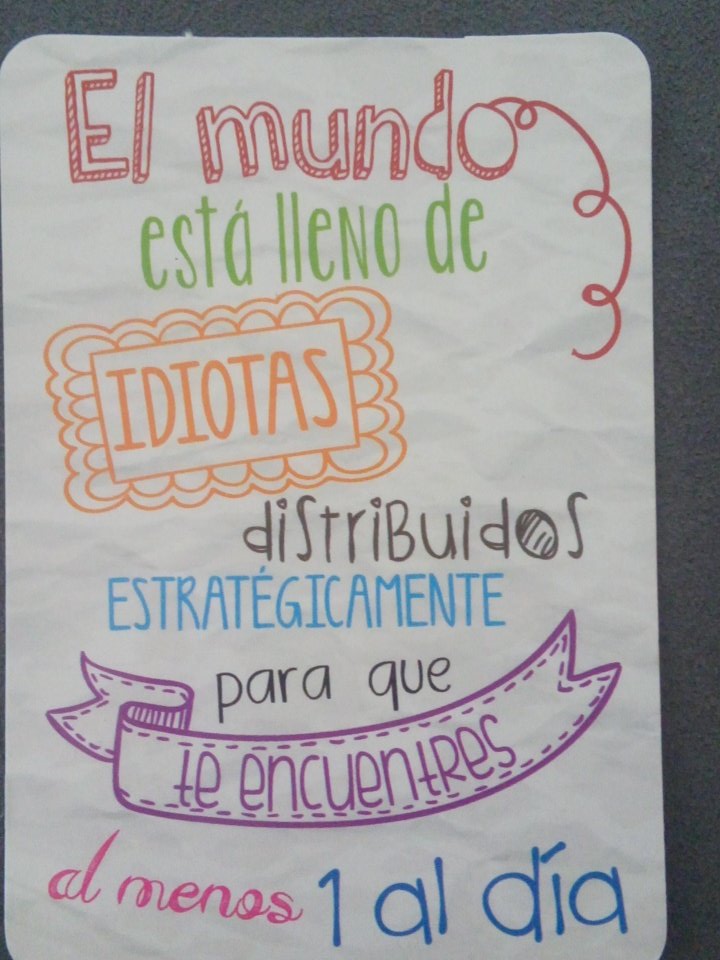 El mundo
está lleno de
IDIOTAS
distribuidos
ESTRATÉGICAMENTE
para que
te encuentres
al menos 1 al día